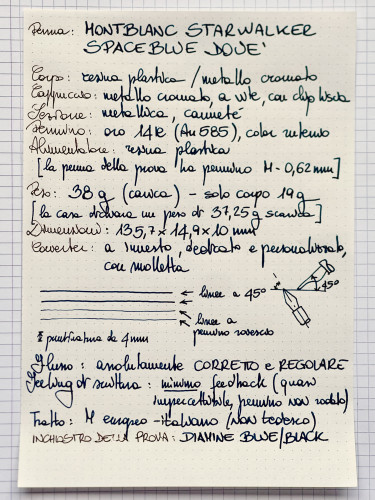 Penna: MONTBLANC STARWALKER
SPACEBLUE DOUÉ
Corpo: resina plastica / metallo cromato
Cappuccio: metallo cromato, a vite, con clip liscia
Sezione: metallica, canneté
Pennino: oro 14k (Au 585), color rutenio
Alimentatore: resina plastica
[la penna della prova ha pennino M - 0,62mm]
Peso: 38 g (carica) - solo corpo 19 g
[la casa dichiara un peso di 37,25 g scarica]
Dimensioni: 135,7 x 14,9 x 10 mm
Converter: a innesto, dedicato e personalizzato,
con molletta
linee a 45°
45°
linee a
pennino rovescio
punteggiatura da 4 mm
Flusso: assolutamente CORRETTO e REGOLARE
Feeling di scrittura: minimo feedback (quasi
impercettibile, pennino non rodato)
Tratto: M europeo - italiano (NON tedesco)
INCHIOSTRO DELLA PROVA: DIAMINE BLUE/BLACK